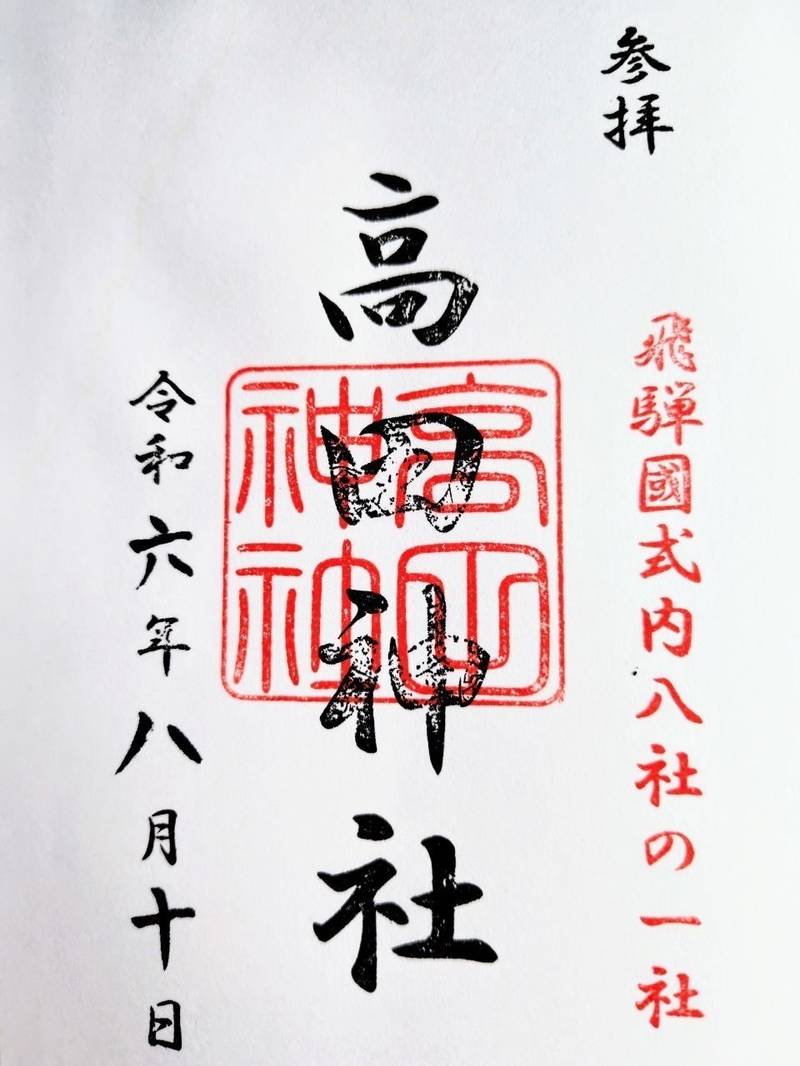 参拝
飛騨國式内八社の一社
高田神社
令和六年八月十日